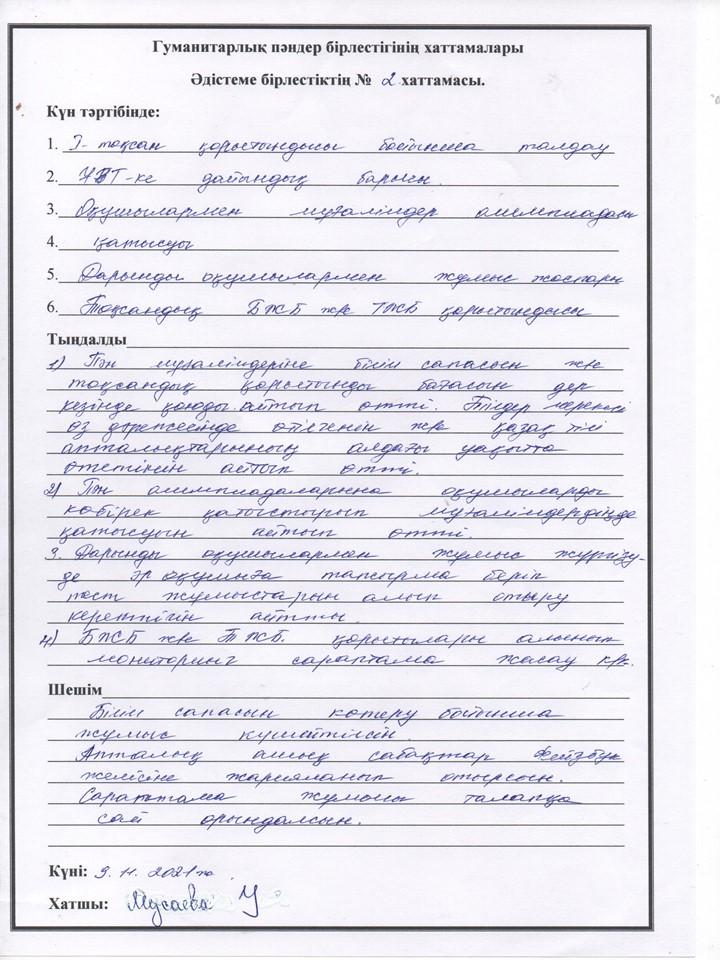 Гуманитарлық пәндер бірлестігінің хаттамалары
Әдістеме бірлестіктің № 2 хаттамасы.
Күн тәртібінде:
1. I- тоқсан қорытындысы бойынша талдау
2. ҰБТ-ке дайындық барысы.
3. Оқушылармен мұғалімдер олимпиадасы
4. қатысуы
5. Дарынды оқушылармен жұмыс жоспары
6. Тоқсандық БЖБ жк ТЖБ қорытындысы
Тыңдалды
1) Пән мұғалімдеріне білім сапасын жк
тоқсандық қорытынды бағасын дер
кезінде қоюды айтып өтті. Тілдер мерекесі
өз дәрежесінде өтілгенін жк қазақ тілі
апталықтарының алдағы уақытта
өтетінін айтып өтті.
2) Пән олимпиадаларына оқушыларды
көбірек қатыстырып мұғалімдердіңде
қатысуын айтып өтті.
3. Дарынды оқушылармен жұмыс жүргізу-
де әр оқушыға тапсырма беріп
тест жұмыстарын алып отыру
керектігін айтты.
4) БЖБ жк ТЖБ. қорытылары алынып
мониторинг сараптама жасау крк.
Шешім
Білім сапасын көтеру бойынша
жұмыс күшейтілсін.
Апталық ашық сабақтар Фейзбук
желісіне жарияланып отырсын.
Сараптама жұмысы талапқа
сай орындалсын.
Күні: 9. 11. 2021ж.
Хатшы: Мусаева У